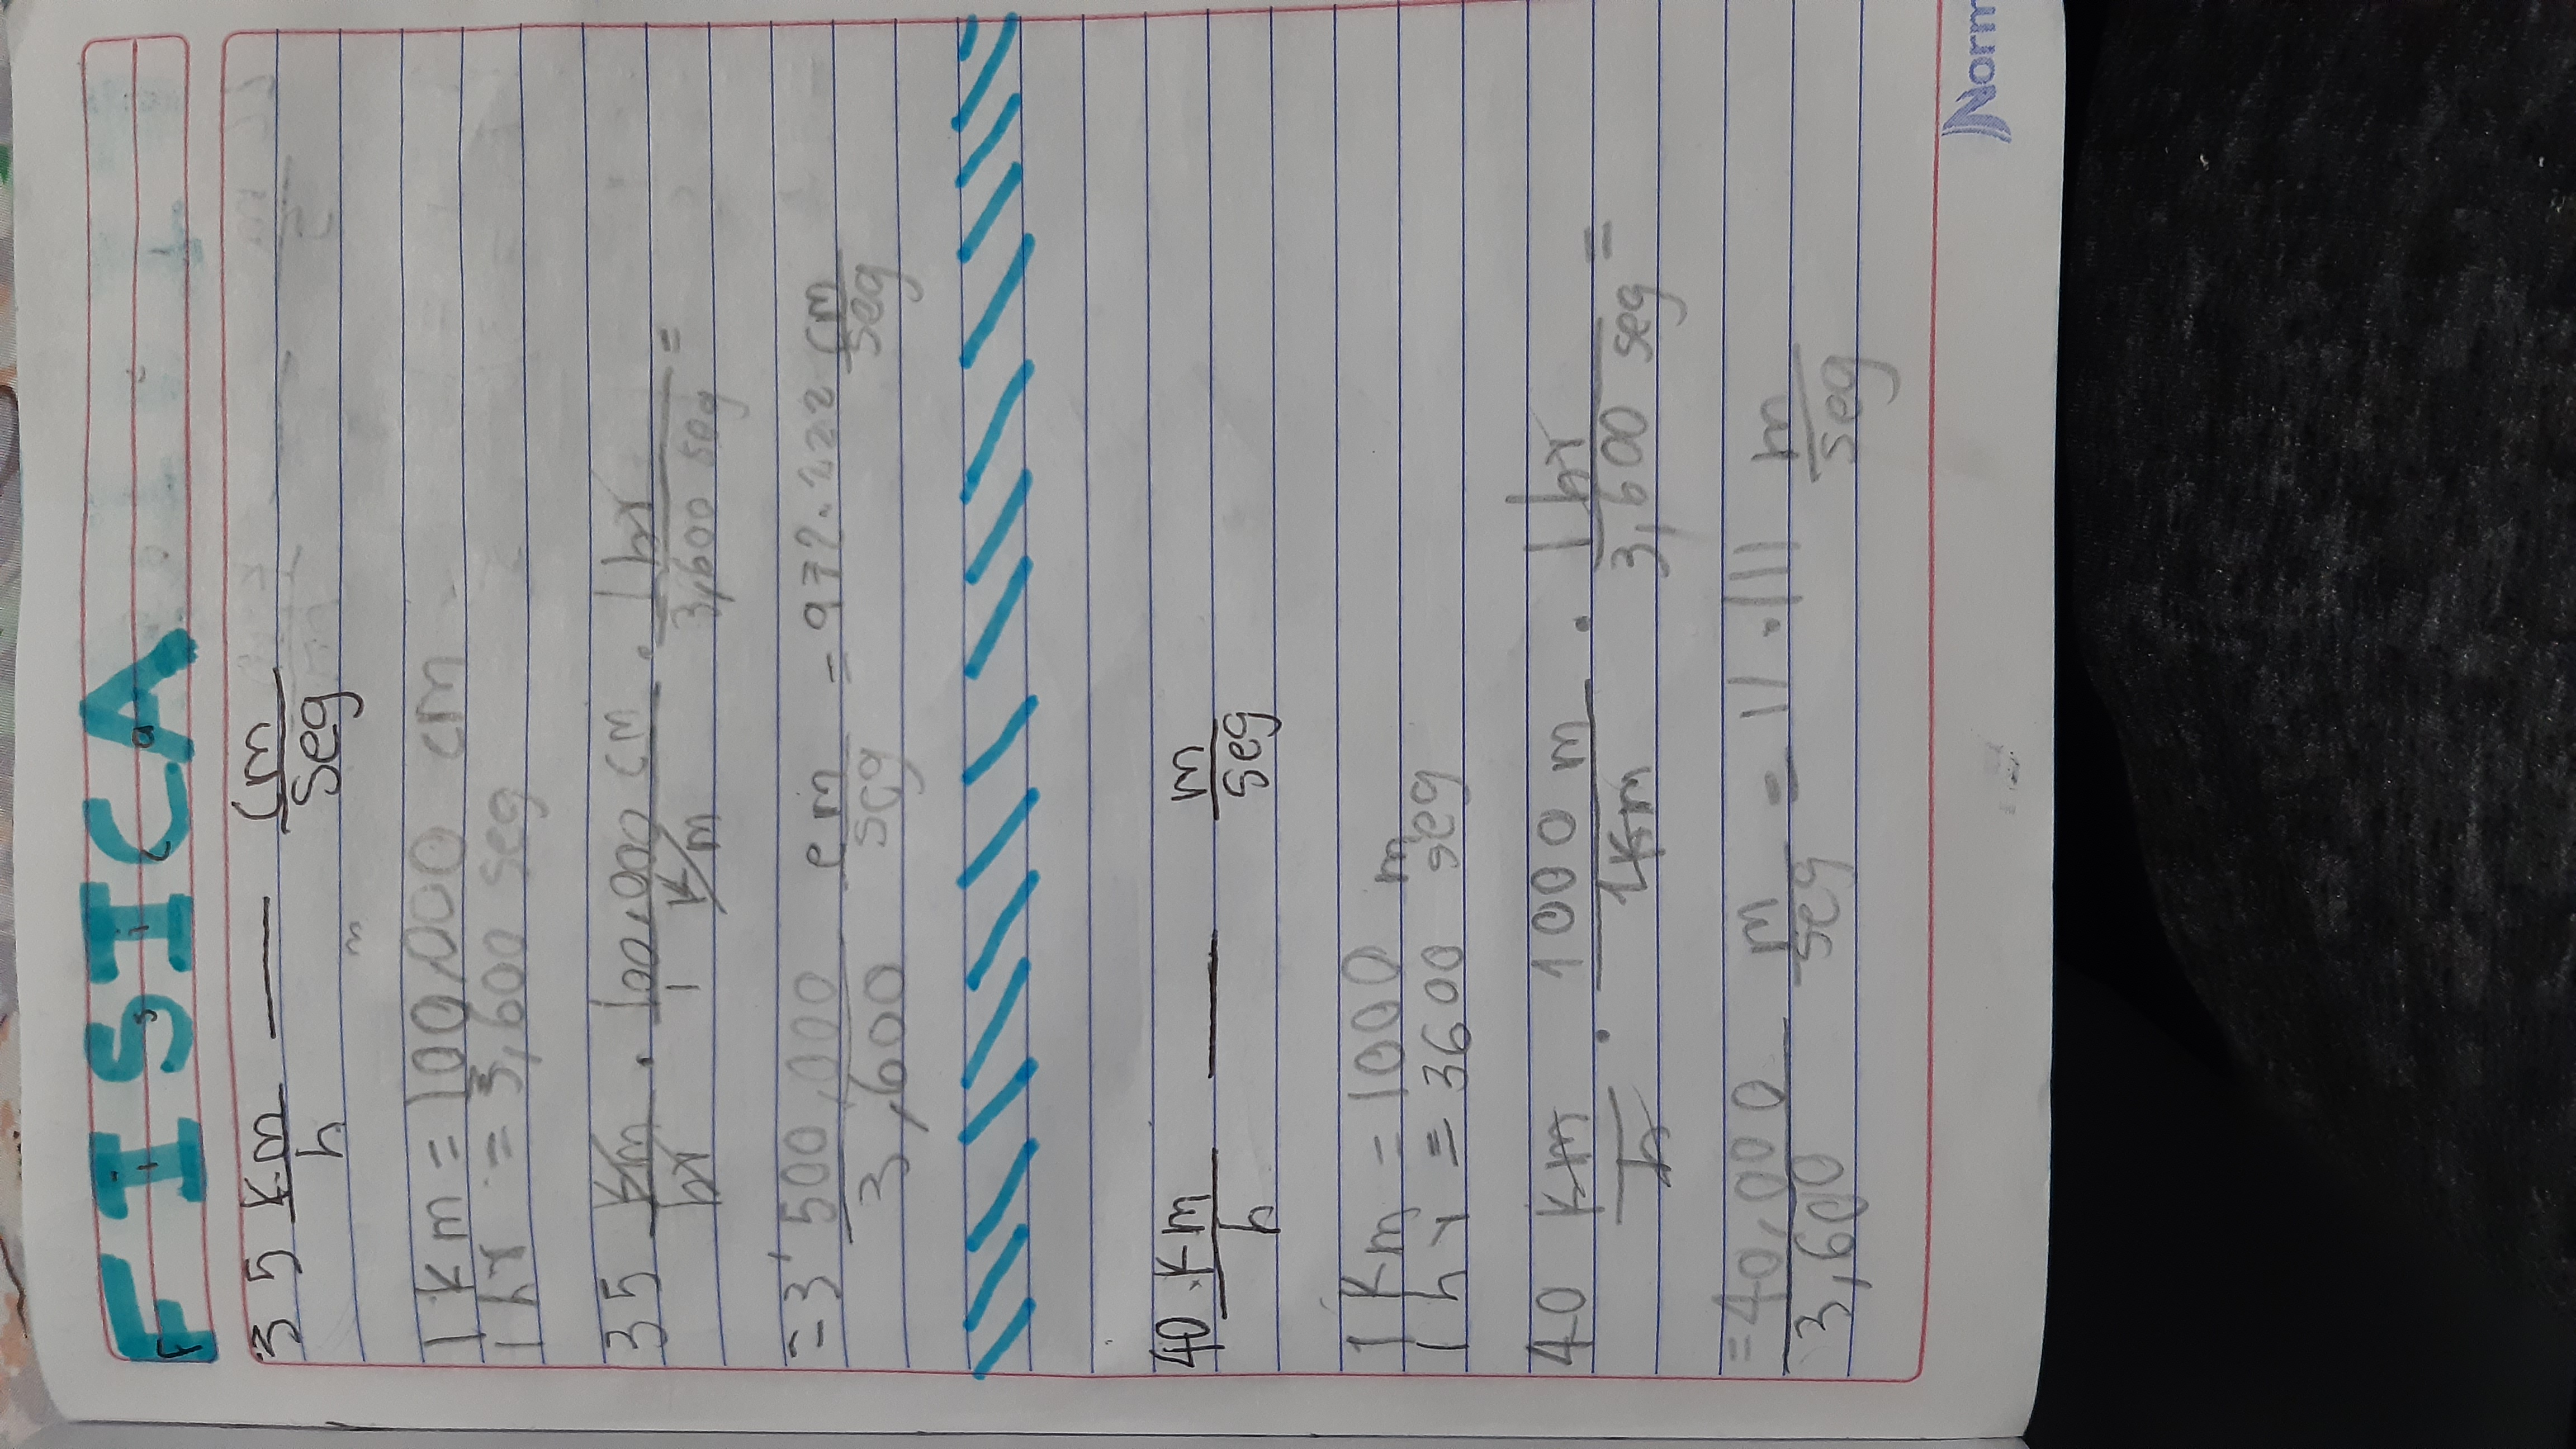 FISICA
35 km/h — cm/seg
1 km = 100,000 cm
1 hr = 3,600 seg
35 km/hr . 100,000 cm/1 km . 1 hr/3,600 seg =
= 3'500,000/3,600 cm/seg = 972.222 cm/seg
40 km/h — m/seg
1 km = 1000 m
1 hr = 3600 seg
40 km/h . 1000 m/1 km . 1 hr/3,600 seg =
= 40,000/3,600 m/seg = 11.111 m/seg
Norm